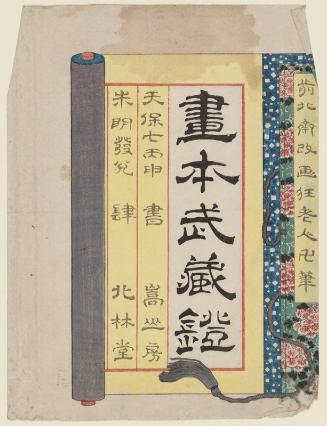 前北斎改画狂老人卍筆
畫本武藏鐙
天保七丙申 書 嵩山房
未明發兌 肆 北林堂